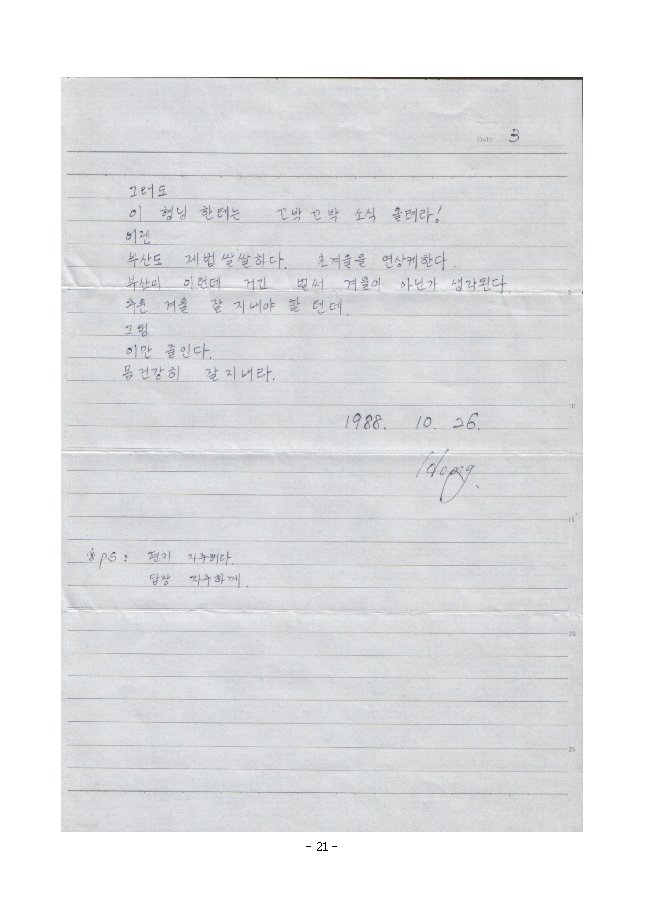 Date 3
그래도
이 형님 한테는 꼬박꼬박 소식 올려라!
이젠
부산도 제법쌀쌀하다. 초겨울을 연상케한다.
부산이 이런데 거긴 벌써 겨울이 아닌가 생각된다.
추운 겨울 잘 지내야 할 텐데.
그럼
이만 줄인다.
몸건강히 잘지내라.
5
10
1988. 10. 26.
15
※ps: 편지 자주해라.
답장 자주하께.
20
25
- 21 -